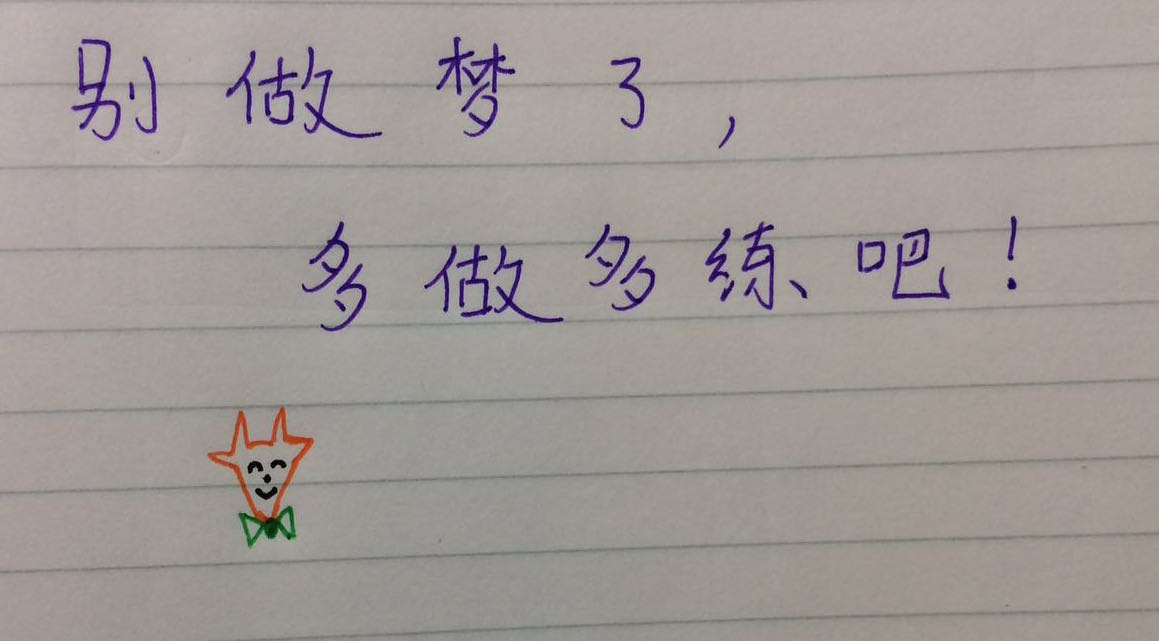 别做梦了,
多做多练吧!